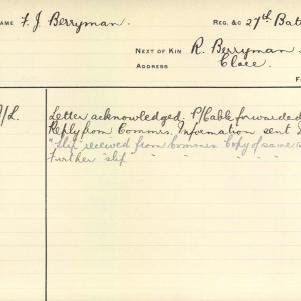 NAME F. J. Berryman. REG. &C 27th Bat
NEXT OF KIN R. Berryman
ADDRESS Clare.
Letter acknowledged. P/Cable forwarded
Reply from Commrs. Information sent
"Slip" received from Commrs Copy of same
Further "slip " " " " "